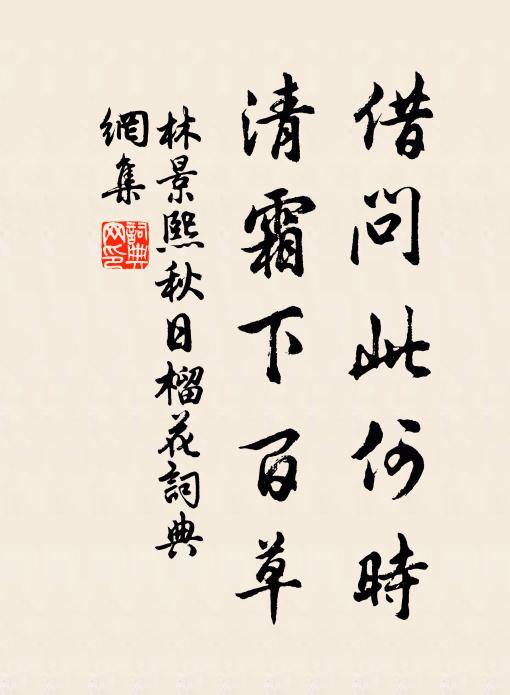 借问此何時
清霜下百草
林景熙秋日榴花詞典
網集
詞典
网印